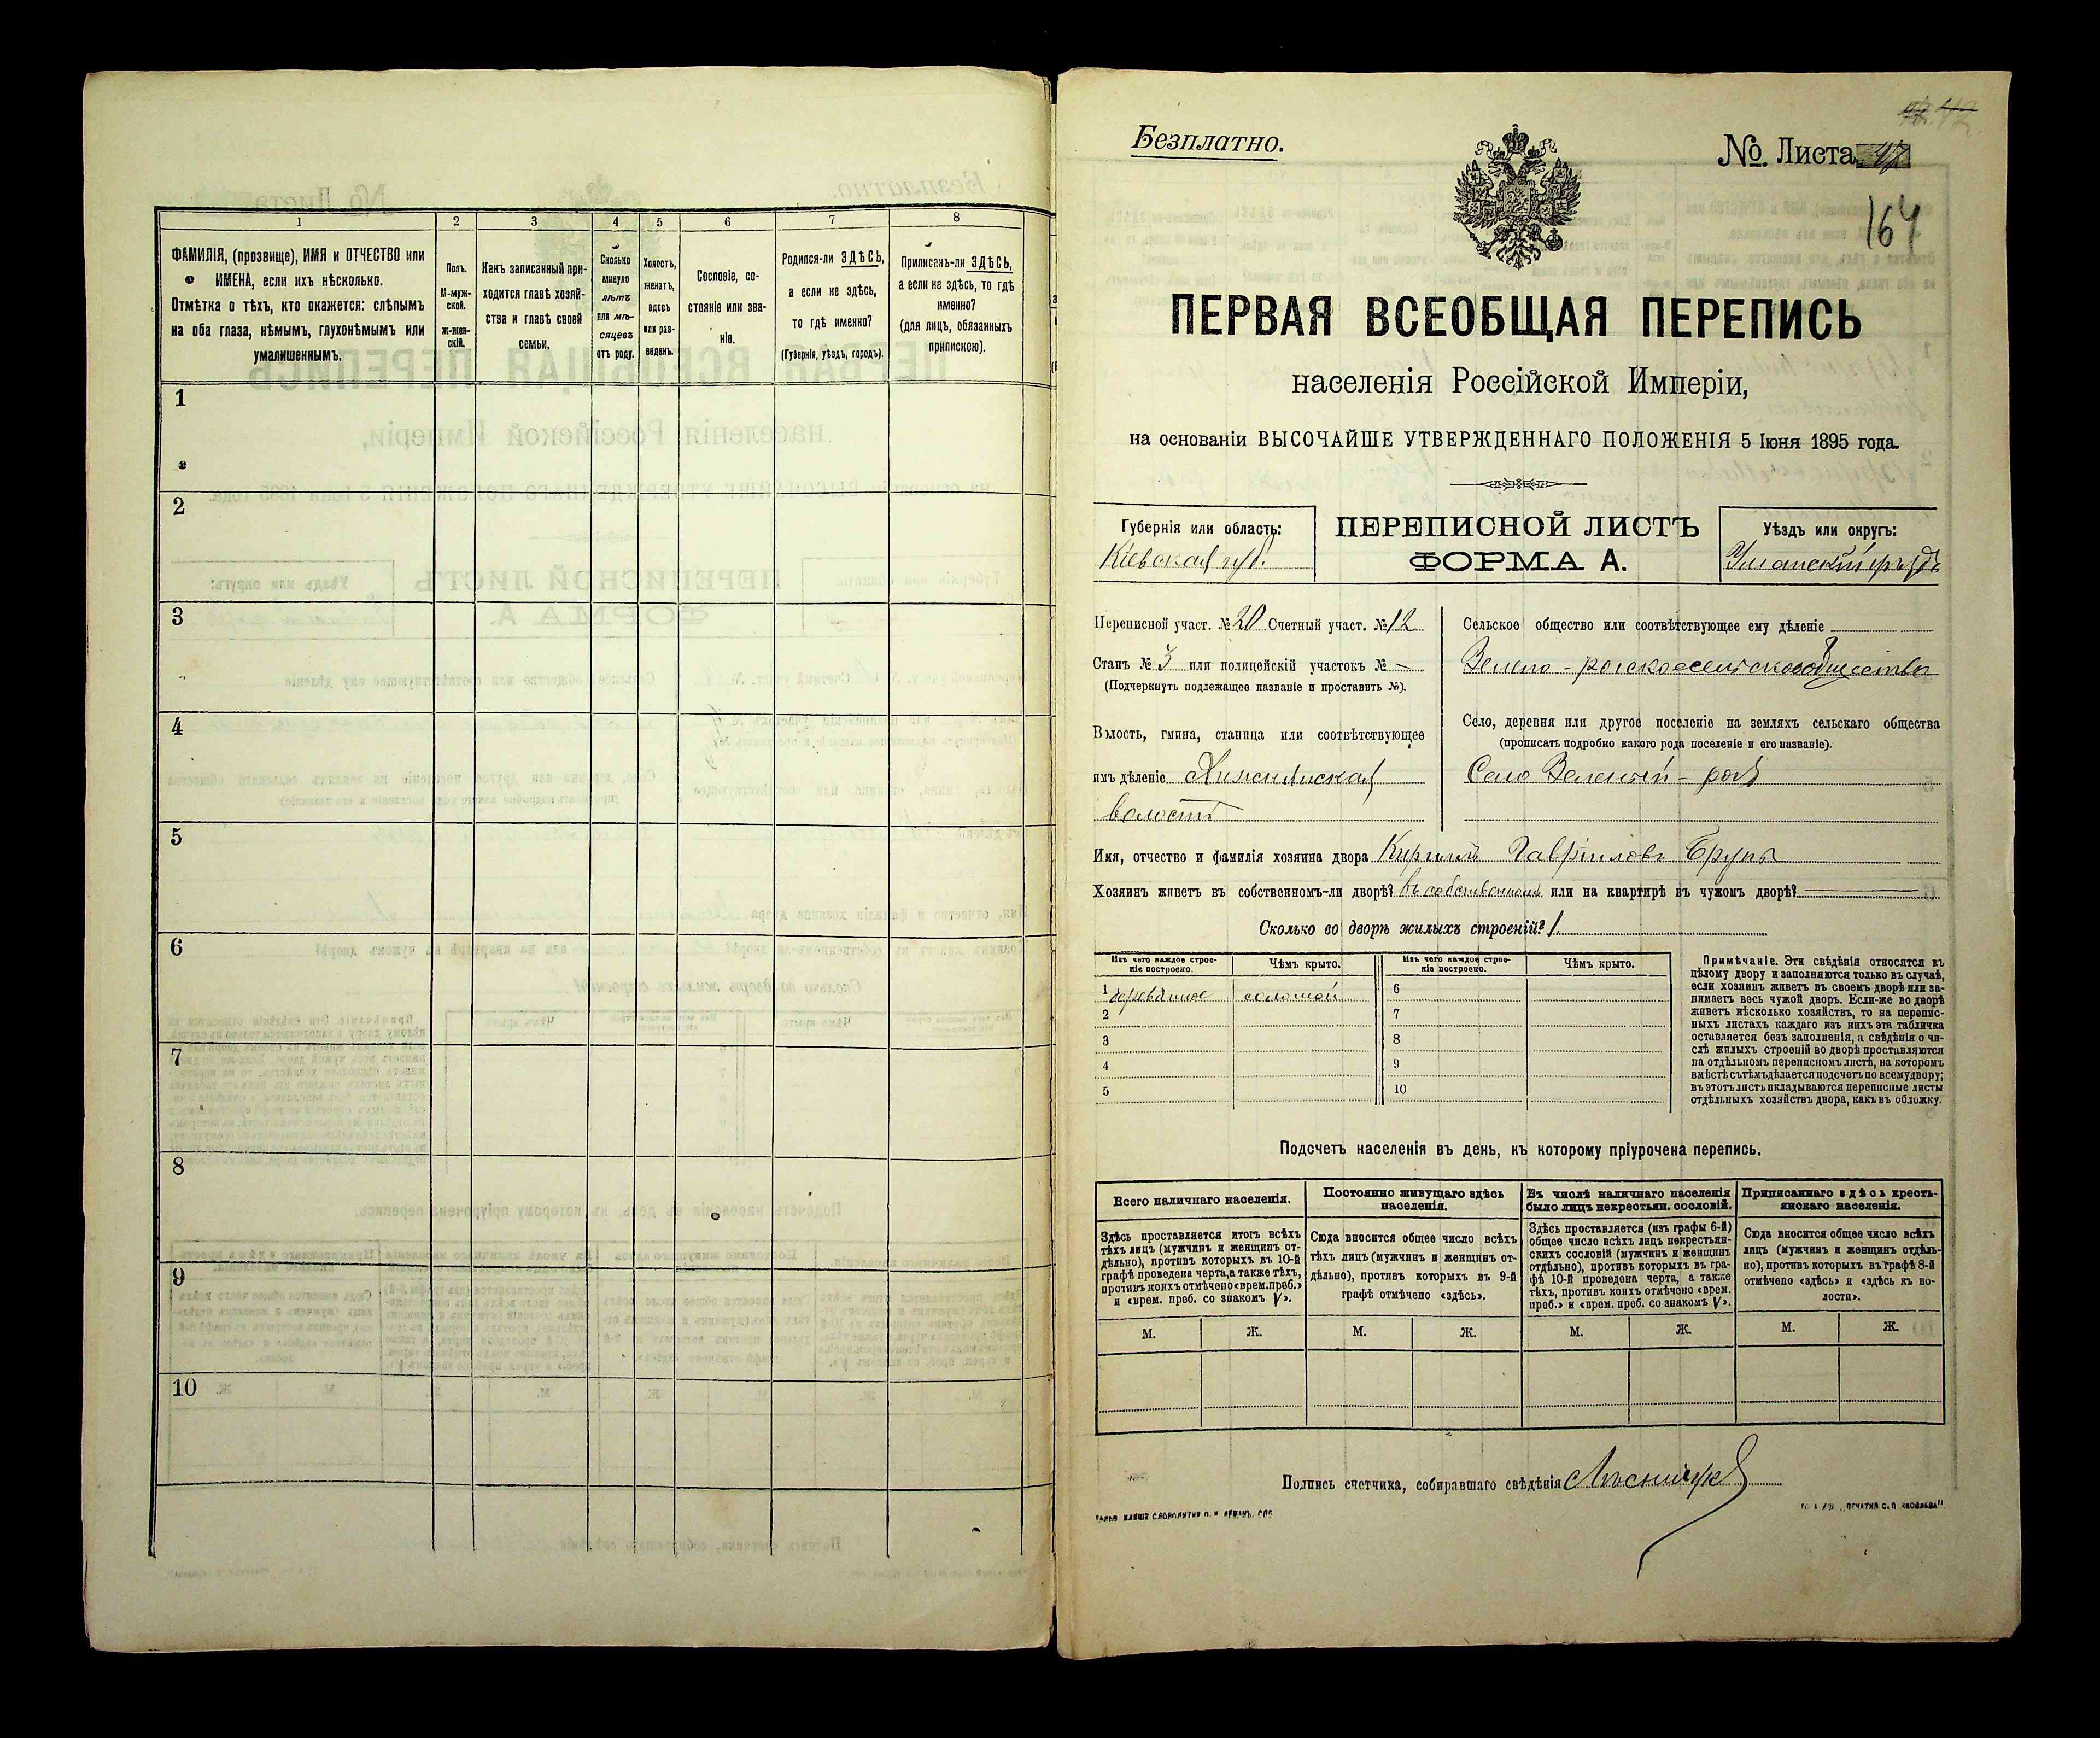 1 2 3 4 5 6 7 8
ФАМИЛІЯ, (прозвище), ИМЯ и ОТЧЕСТВО или
ИМЕНА, если ихъ нѣсколько.
Отмѣтка о тѣхъ, кто окажется: слѣпымъ
на оба глаза, нѣмымъ, глухонѣмымъ или
умалишеннымъ.
Полъ.
М-муж-
ской.
Ж-жен-
скій.
Какъ записанный при-
ходится главѣ хозяй-
ства и главѣ своей
семьи.
Сколько
минуло
лѣтъ
или мѣ-
сяцевъ
отъ роду.
Холостъ,
женатъ,
вдовъ
или раз-
веденъ.
Сословіе, со-
стояніе или зва-
ніе.
Родился-ли ЗДѢСЬ,
а если не здѣсь,
то гдѣ именно?
(Губернія, уѣздъ, городъ).
Приписанъ-ли ЗДѢСЬ,
а если не здѣсь, то гдѣ
именно?
(для лицъ, обязанныхъ
припискою).
1
2
3
4
5
6
7
8
9
10
Безплатно.
№. Листа
164
ПЕРВАЯ ВСЕОБЩАЯ ПЕРЕПИСЬ
населенія Россійской Имперіи,
на основаніи ВЫСОЧАЙШЕ УТВЕРЖДЕННАГО ПОЛОЖЕНІЯ 5 Іюня 1895 года.
Губернія или область:
Кіевская губ.
ПЕРЕПИСНОЙ ЛИСТЪ
ФОРМА А.
Уѣздъ или округъ:
Уманскій уѣздъ
Переписной участ. № 20 Счетный участ. № 12
Станъ № 3 или полицейскій участокъ № —
(Подчеркнуть подлежащее названіе и проставить №).
Волость, гмина, станица или соотвѣтствующее
имъ дѣленіе
волость
Сельское общество или соотвѣтствующее ему дѣленіе
Зелено-рогское сельское общество
Село, деревня или другое поселеніе на земляхъ сельскаго общества
(прописать подробно какого рода поселеніе и его названіе).
Село Зеленый-рогъ
Имя, отчество и фамилія хозяина двора Кирилъ Гавріиловъ Брупъ
Хозяинъ живетъ въ собственномъ-ли дворѣ? въ собственномъ или на квартирѣ въ чужомъ дворѣ?
Сколько во дворѣ жилыхъ строеній? 1.
Изъ чего каждое строе-
ніе построено.
Чѣмъ крыто.
Изъ чего каждое строе-
ніе построено.
Чѣмъ крыто.
1 деревянное соломой 6
2 7
3 8
4 9
5 10
Примѣчаніе. Эти свѣдѣнія относятся къ
цѣлому двору и заполняются только въ случаѣ,
если хозяинъ живетъ въ своемъ дворѣ или за-
нимаетъ весь чужой дворъ. Если-же во дворѣ
живетъ нѣсколько хозяйствъ, то на перепис-
ныхъ листахъ каждаго изъ нихъ эта табличка
оставляется безъ заполненія, а свѣдѣнія о чи-
слѣ жилыхъ строеній во дворѣ проставляются
на отдѣльномъ переписномъ листѣ, на которомъ
вмѣстѣ съ тѣмъ дѣлается подсчетъ по всему двору;
въ этотъ листъ вкладываются переписные листы
отдѣльныхъ хозяйствъ двора, какъ въ обложку.
Подсчетъ населенія въ день, къ которому пріурочена перепись.
Всего наличнаго населенія.
Здѣсь проставляется итогъ всѣхъ
тѣхъ лицъ (мужчинъ и женщинъ от-
дѣльно), противъ которыхъ въ 10-й
графѣ проведена черта, а также тѣхъ,
противъ коихъ отмѣчено «врем. преб.»
и «врем. преб. со знакомъ V».
Постоянно живущаго здѣсь
населенія.
Сюда вносится общее число всѣхъ
тѣхъ лицъ (мужчинъ и женщинъ от-
дѣльно), противъ которыхъ въ 9-й
графѣ отмѣчено «здѣсь».
Въ числѣ наличнаго населенія
было лицъ некрестьян. сословій.
Здѣсь проставляется (изъ графы 6-й)
общее число всѣхъ лицъ некрестьян-
скихъ сословій (мужчинъ и женщинъ
отдѣльно), противъ которыхъ въ гра-
фѣ 10-й проведена черта, а также
тѣхъ, противъ коихъ отмѣчено «врем.
преб.» и «врем. преб. со знакомъ V».
Приписаннаго здѣсь кресть-
янскаго населенія.
Сюда вносится общее число всѣхъ
лицъ (мужчинъ и женщинъ отдѣль-
но), противъ которыхъ въ графѣ 8-й
отмѣчено «здѣсь» и «здѣсь къ во-
лости».
М. Ж. М. Ж. М. Ж. М. Ж.
Подпись счетчика, собиравшаго свѣдѣнія